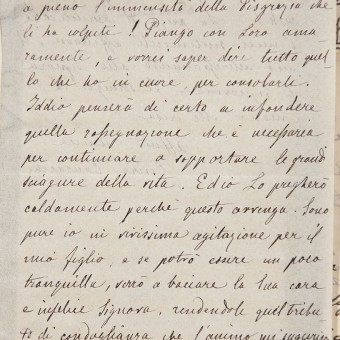 a pieno l'immensità della disgrazia che
li ha colpiti! Piango con Loro ama
ramente, e vorrei saper dire tutto quel
la che ho in cuore, per consolarli.
Iddio penserà di certo a infondere
quella rassegnazione che è necessaria
per continuare a sopportare le grandi
sciagure della vita. Ed io Lo pregherò
caldamente perchè questo avvenga. Sono
pure io in vivissima agitazione per il
mio figlio, e se potrò essere un poco
tranquilla, verrò a baciare la Sua cara
e infelice Signora, rendendole quel tribu
to di condoglianza che l'animo mi suggerisce